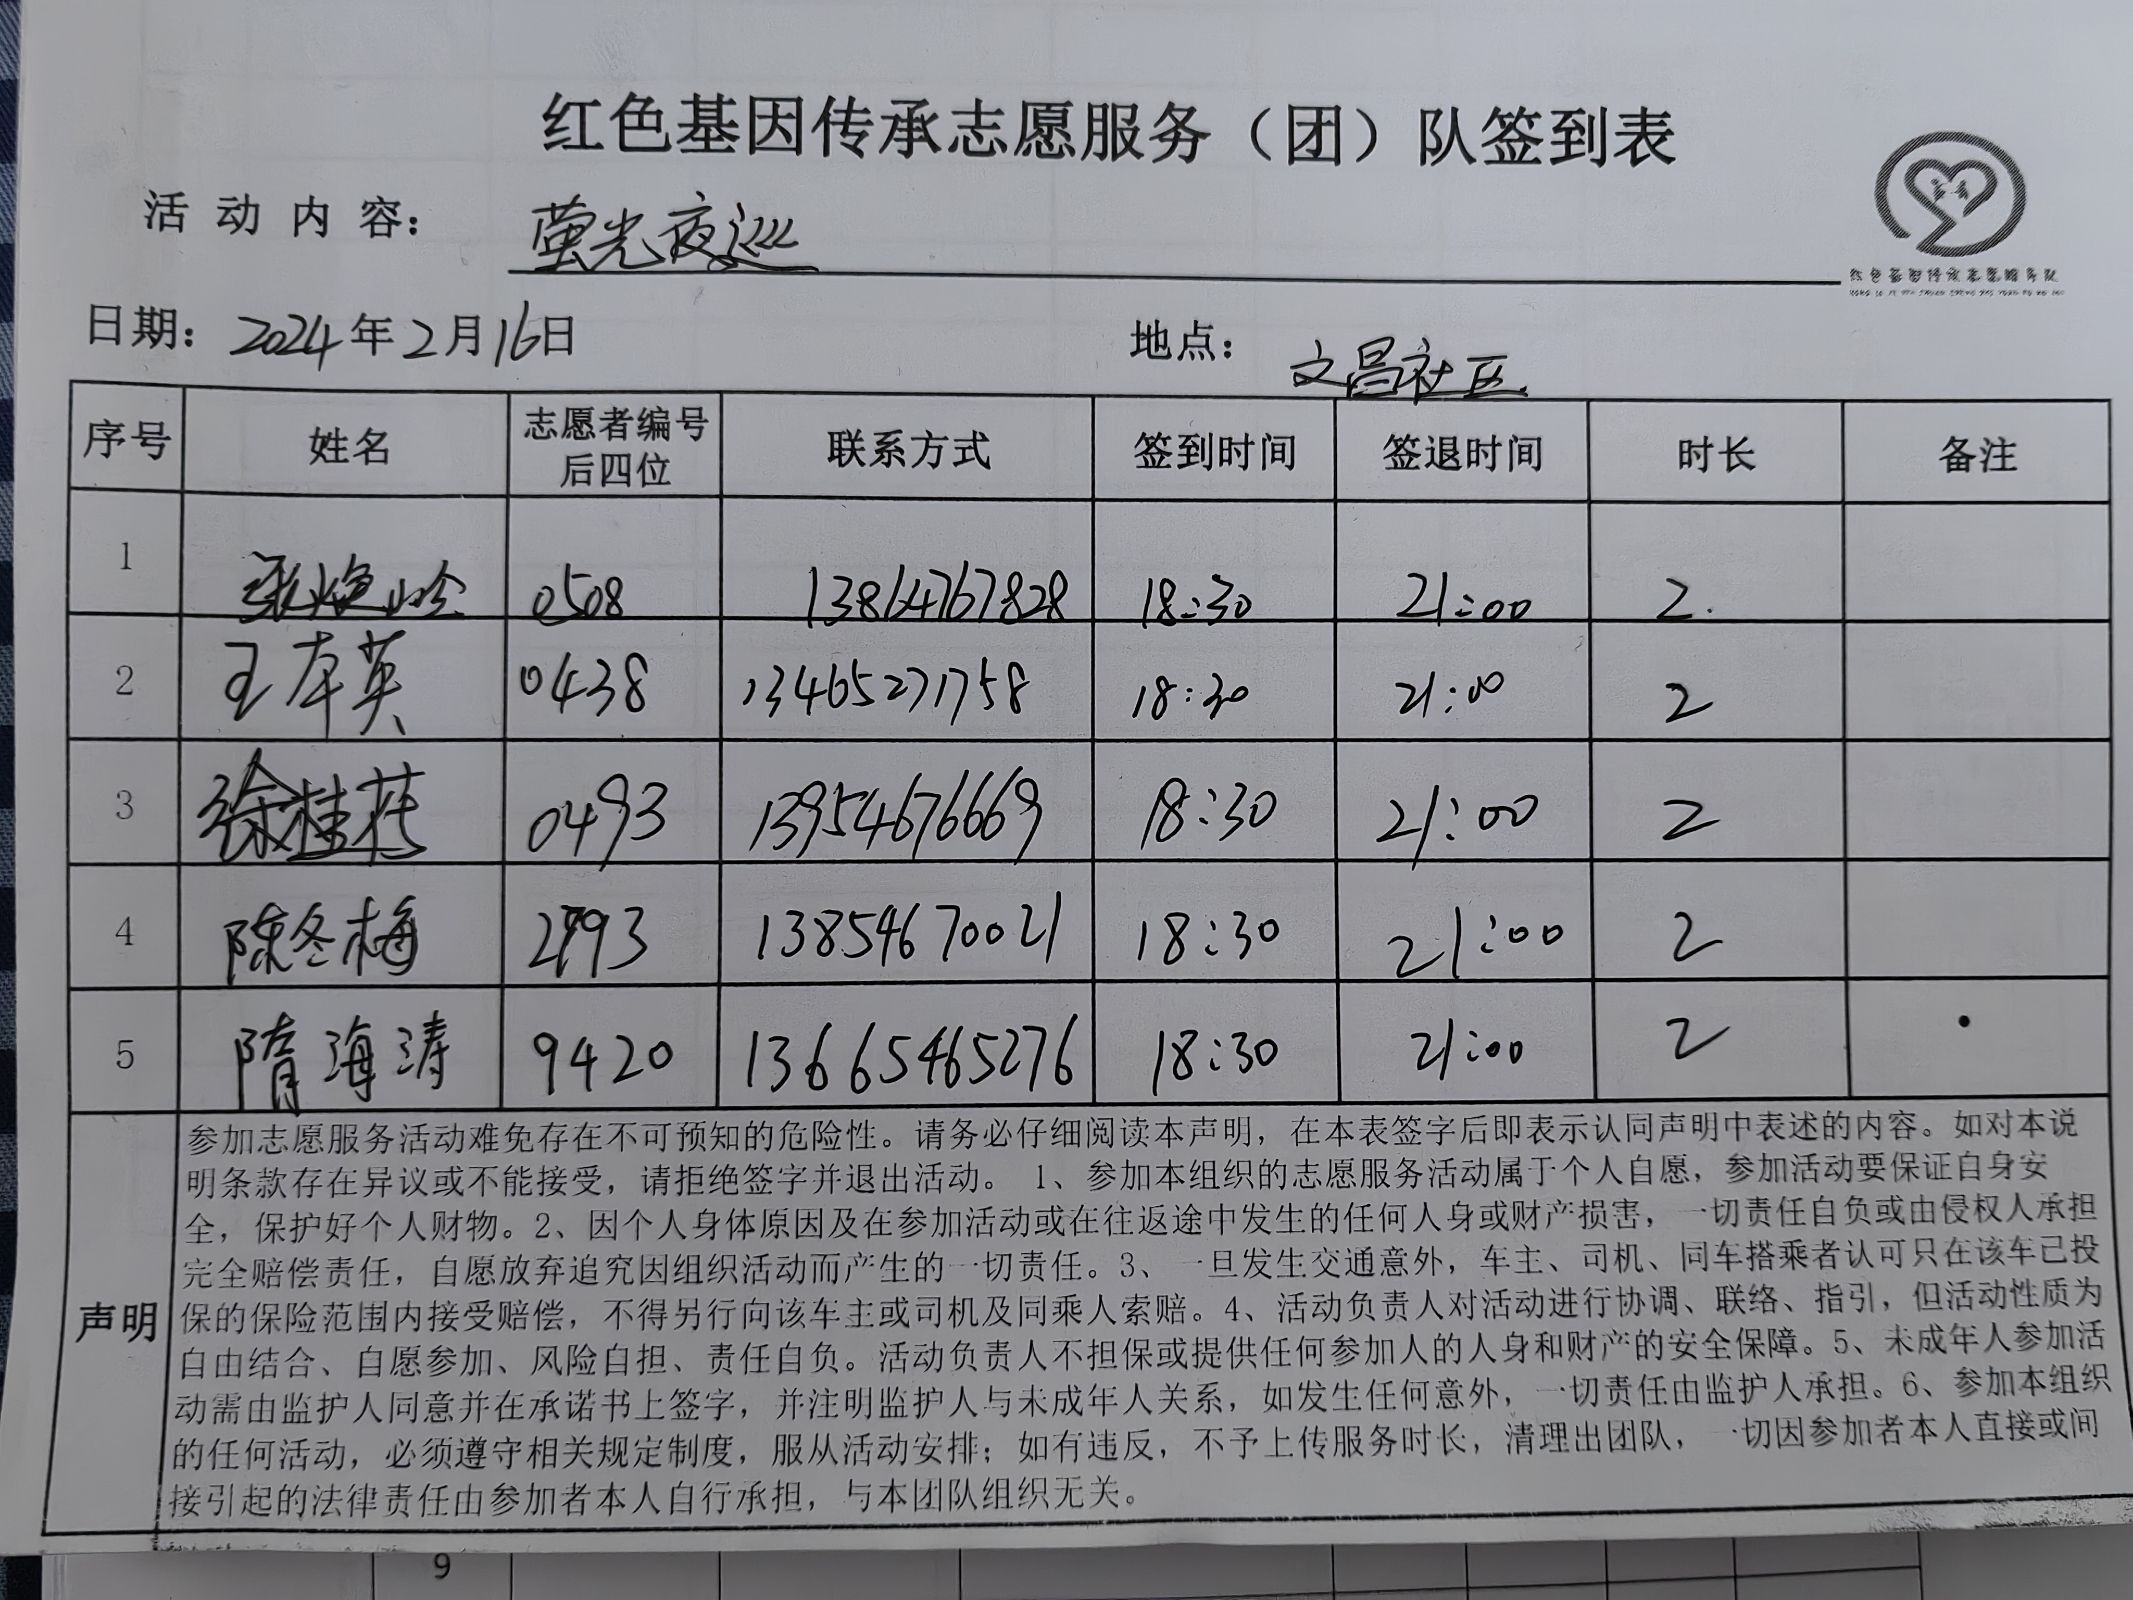 红色基因传承志愿服务（团）队签到表
活动内容： 萤光夜巡
红色基因传承志愿服务队
日期：2024年2月16日 地点：文昌社区
序号 姓名 志愿者编号后四位 联系方式 签到时间 签退时间 时长 备注
1 张焕岭 0508 13864767828 18:30 21:00 2
2 王存英 0438 13465271758 18:30 21:00 2
3 徐桂花 0493 13954676669 18:30 21:00 2
4 陈冬梅 2793 13854670021 18:30 21:00 2
5 隋海涛 9420 13665465276 18:30 21:00 2
声明
参加志愿服务活动难免存在不可预知的危险性。请务必仔细阅读本声明，在本表签字后即表示认同声明中表述的内容。如对本说
明条款存在异议或不能接受，请拒绝签字并退出活动。 1、参加本组织的志愿服务活动属于个人自愿，参加活动要保证自身安
全，保护好个人财物。2、因个人身体原因及在参加活动或在往返途中发生的任何人身或财产损害，一切责任自负或由侵权人承担
完全赔偿责任，自愿放弃追究因组织活动而产生的一切责任。3、一旦发生交通意外，车主、司机、同车搭乘者认可只在该车已投
保的保险范围内接受赔偿，不得另行向该车主或司机及同乘人索赔。4、活动负责人对活动进行协调、联络、指引，但活动性质为
自由结合、自愿参加、风险自担、责任自负。活动负责人不担保或提供任何参加人的人身和财产的安全保障。5、未成年人参加活
动需由监护人同意并在承诺书上签字，并注明监护人与未成年人关系，如发生任何意外，一切责任由监护人承担。6、参加本组织
的任何活动，必须遵守相关规定制度，服从活动安排；如有违反，不予上传服务时长，清理出团队，一切因参加者本人直接或间
接引起的法律责任由参加者本人自行承担，与本团队组织无关。
9